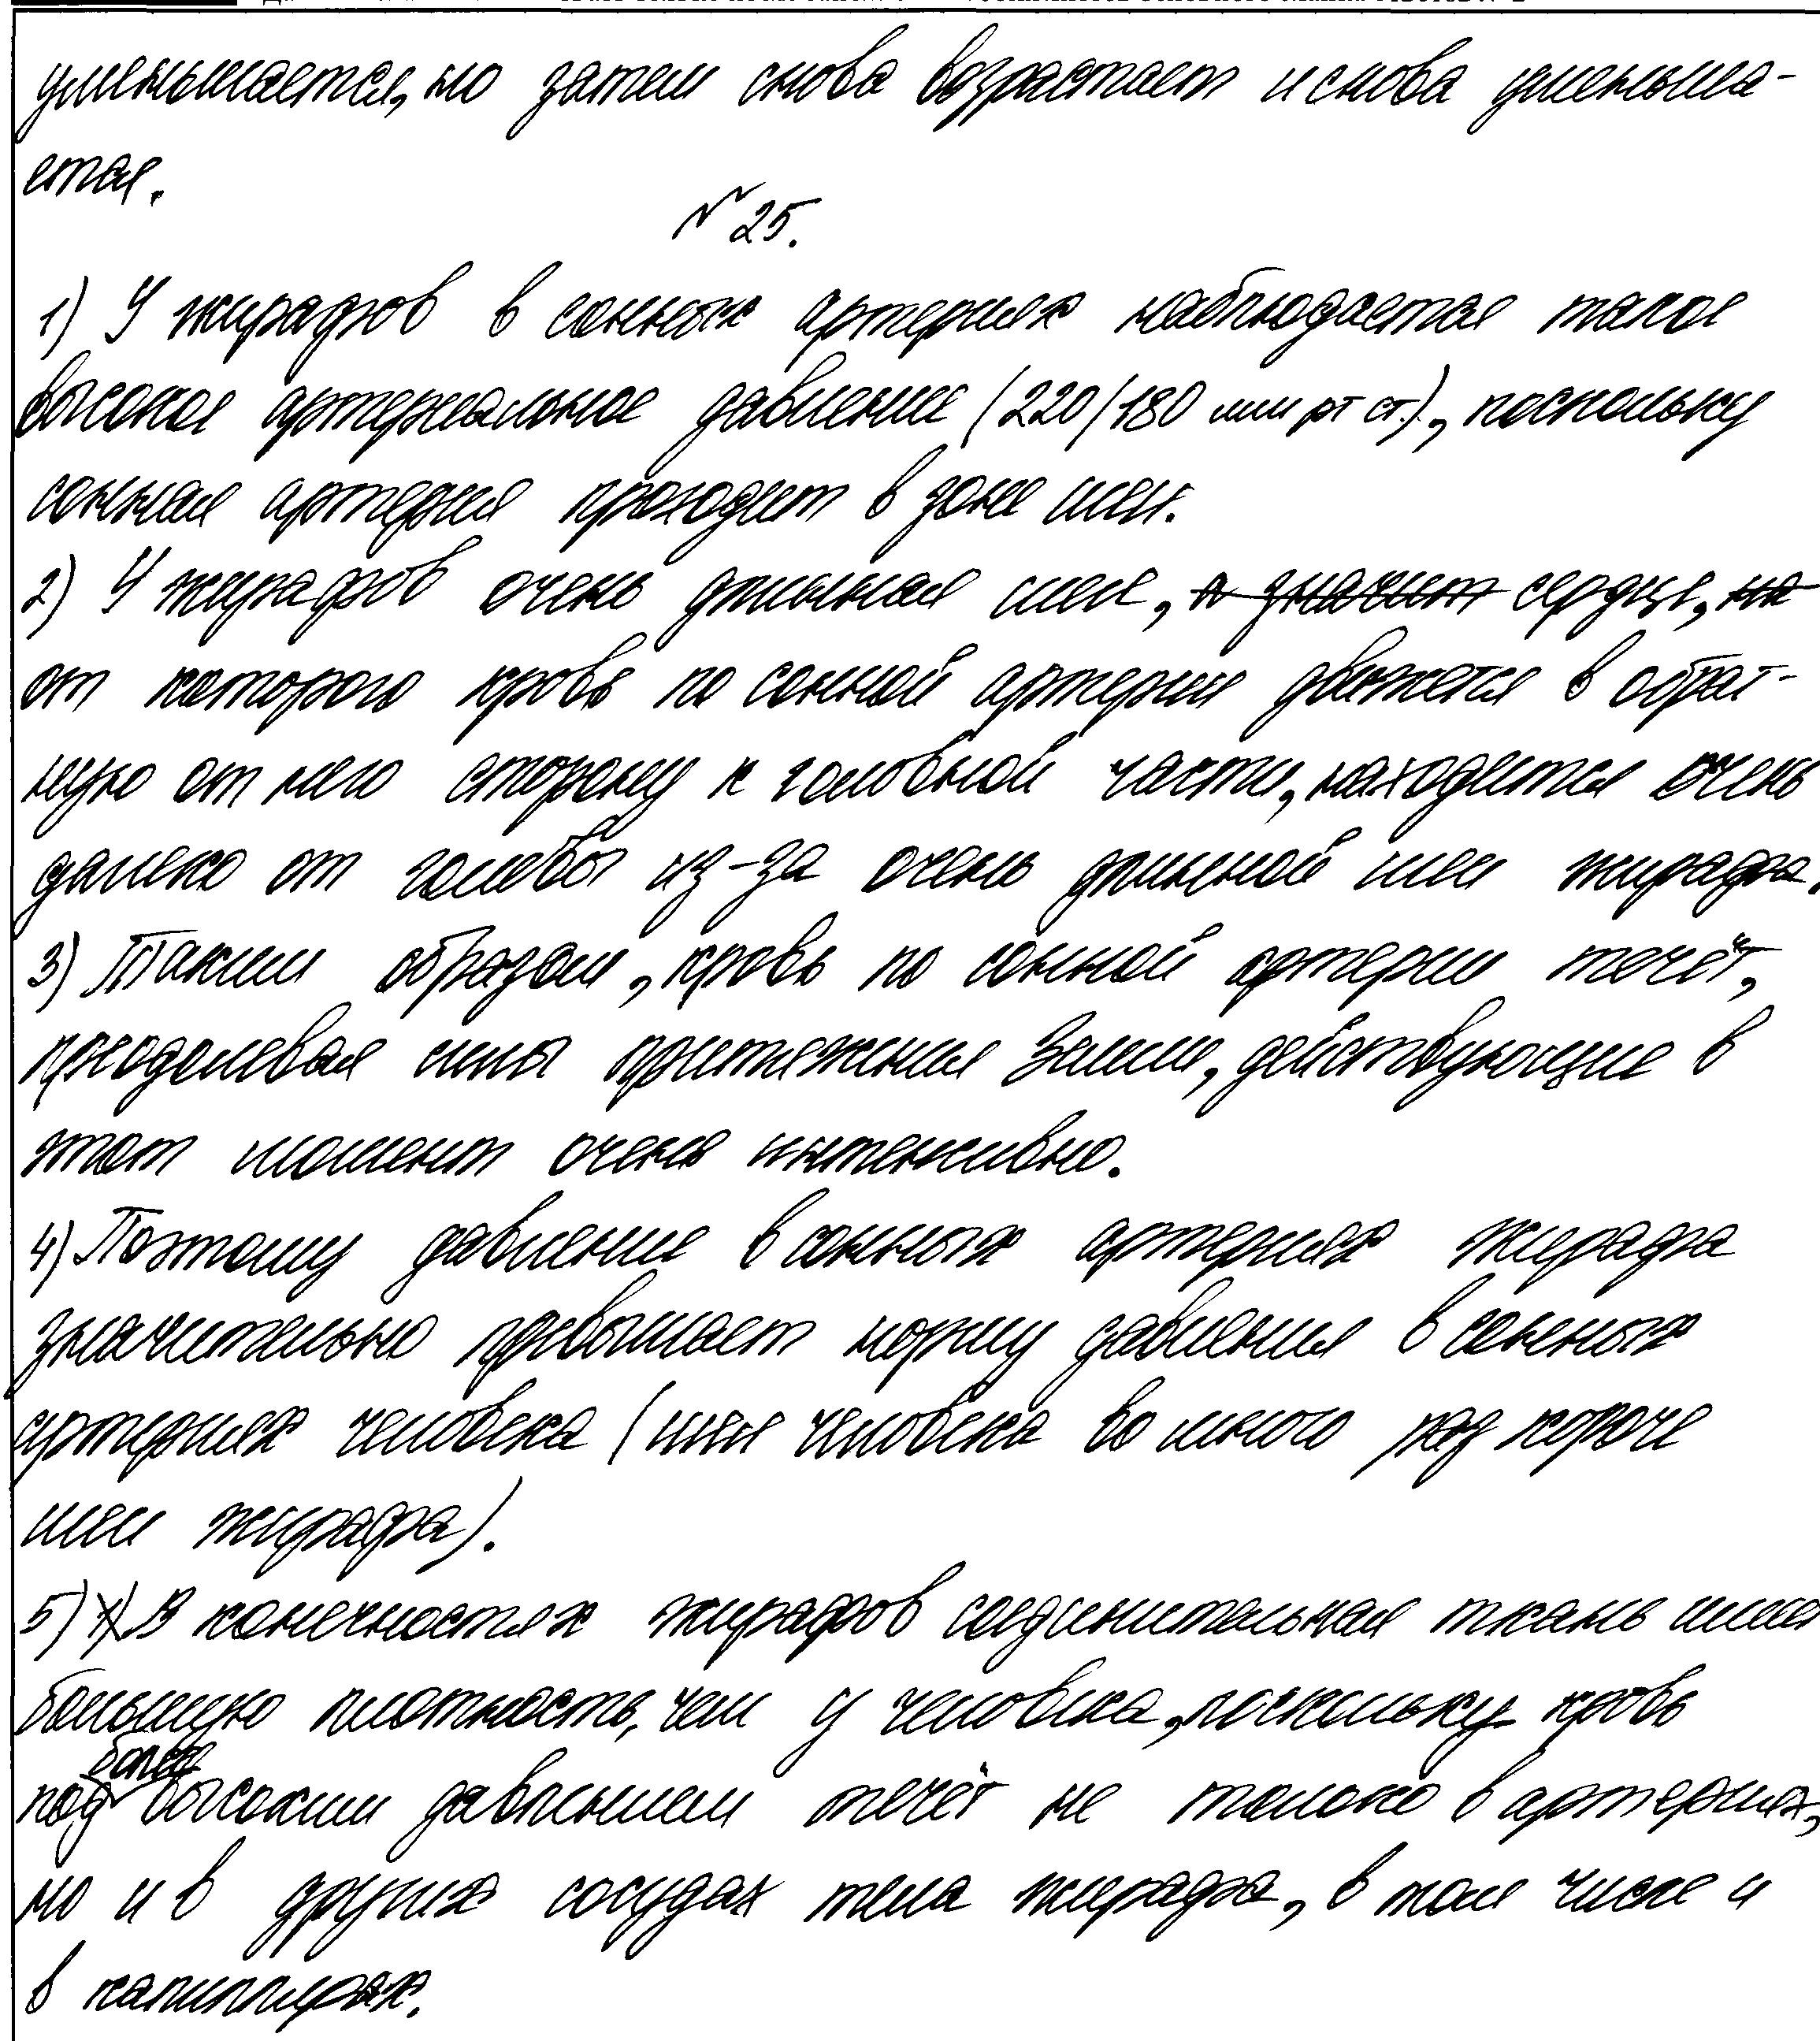 уменьшается, но затем снова возрастает и снова уменьша-
ется.
№ 25.
1) У жирафов в сонных артериях наблюдается такое
высокое артериальное давление (220/180 мм рт ст.), поскольку
сонная артерия проходит в зоне шеи.
2) У жирафов очень длинная шея, а значит сердце, на
от которого кровь по сонной артерии движется в обрат-
ную от него сторону к головной части, находится очень
далеко от головы из-за очень длинной шеи жирафа.
3) Таким образом, кровь по сонной артерии течёт,
преодолевая силы притяжения Земли, действующие в
этот момент очень интенсивно.
4) Поэтому давление в сонных артериях жирафа
значительно превышает норму давления в сонных
артериях человека (шея человека во много раз короче
шеи жирафа).
5) В конечностях жирафов соединительная ткань имеет
большую плотность, чем у человека, поскольку кровь
под более высоким давлением течёт не только в артериях,
но и в других сосудах тела жирафа, в том числе и
в капиллярах.